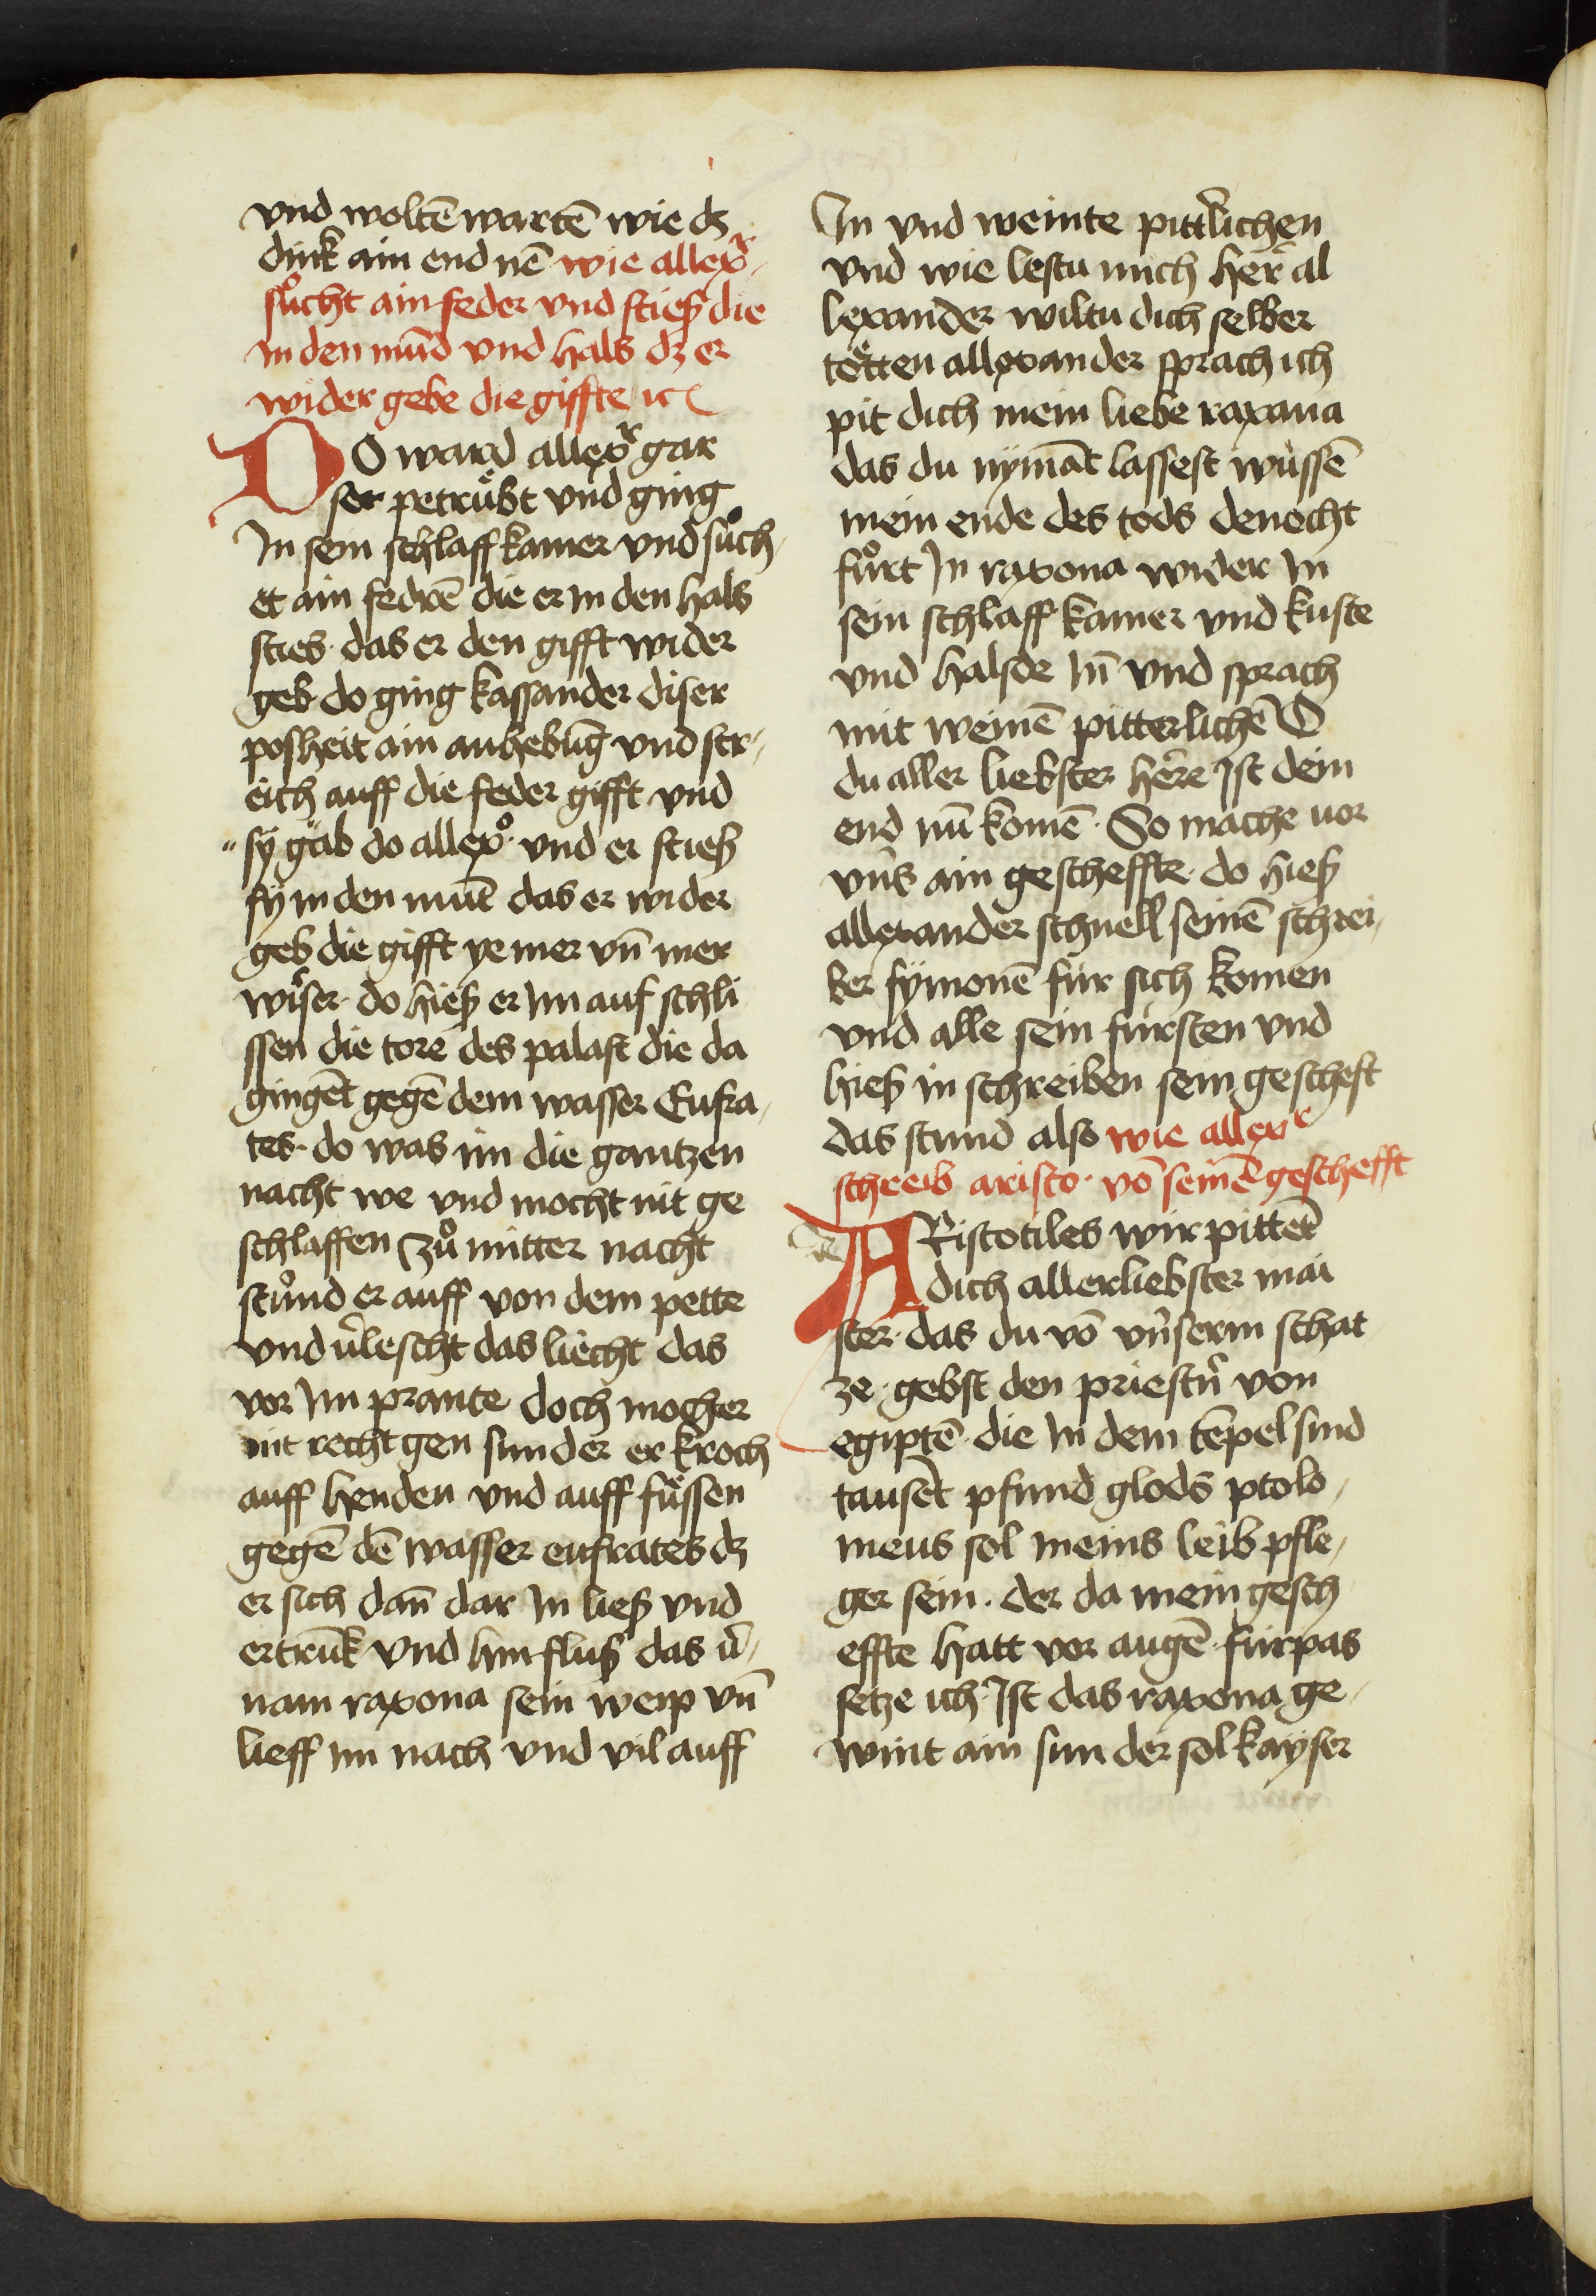 vnd woltē wartē wie dz
dink ain end nē wie allexr
sůcht ain feder vnd stieß die
in den mūd vnd hals dz er
wider gebe die giffte ⁊c
DO ward allexr gar
ser petrübt vnd ging
In sein schlaff kamer vnd sůch
et ain fedrē die er in den hals
sties · das er den gifft wider
geb do ging kassander diser
posheit ain anhebūg vnd str
eich auff die feder gifft vnd
sy gab do allexo · vnd er stieß
sy in den mūt das er wider
geb die gifft ye mer vn̄ mer
wirser · do hieß er Im auf schli
ssen die tore des palast die da
gingēt gegē dem wasser Eufra
tes · do was im die gantzen
nacht we vnd mocht nit ge
schlaffen Zů mitter nacht
stůnd er auff von dem pette
vnd v̓lescht das liecht das
vor Im prante doch mocher
nit recht gen sunder er kroch
auff henden vnd auff füssen
gegē dē wasser eufrates dz
er sich dan̄ dar In ließ vnd
ertrūk vnd hin fluß das v̓
nam raxona sein weip vn̄
lieff im nach vnd vil auff
In vnd weinte pitt̓lichen
vnd wie lestu mich her̄ al
lexander wiltu dich selber
tötten allexander sprach ich
pit dich mein liebe raxana
das du nymāt lassest wüssē
mein ende des tods denocht
fůrt In raxona wider In
sein schlaff kamer vnd kuste
vnd halsde In̄ vnd sprach
mit weinē pitterlichē O
du aller liebster here Ist dein
end nū komē · So mache vor
vns ain gescheffte · do hieß
allexander schnell seinē schrei
ber symonē für sich komen
vnd alle sein fürsten vnd
hieß in schreiben sein gescheft
das stund also wie allexr
schreib aristo · vō seinē geschefft
ARistotiles wir pittēt
dich allerliebster mai
ster · das du vō vnserm schat
ze · gebst den priestn̓ von
egiptē · die In dem tēpel sind
tausēt pfund glods ptolo
meus sol meins leib pfle
ger sein · der da mein gesch
effte hatt vor augē · fürpas
setze ich · Ist das raxona ge
wint ain sun der sol kayser